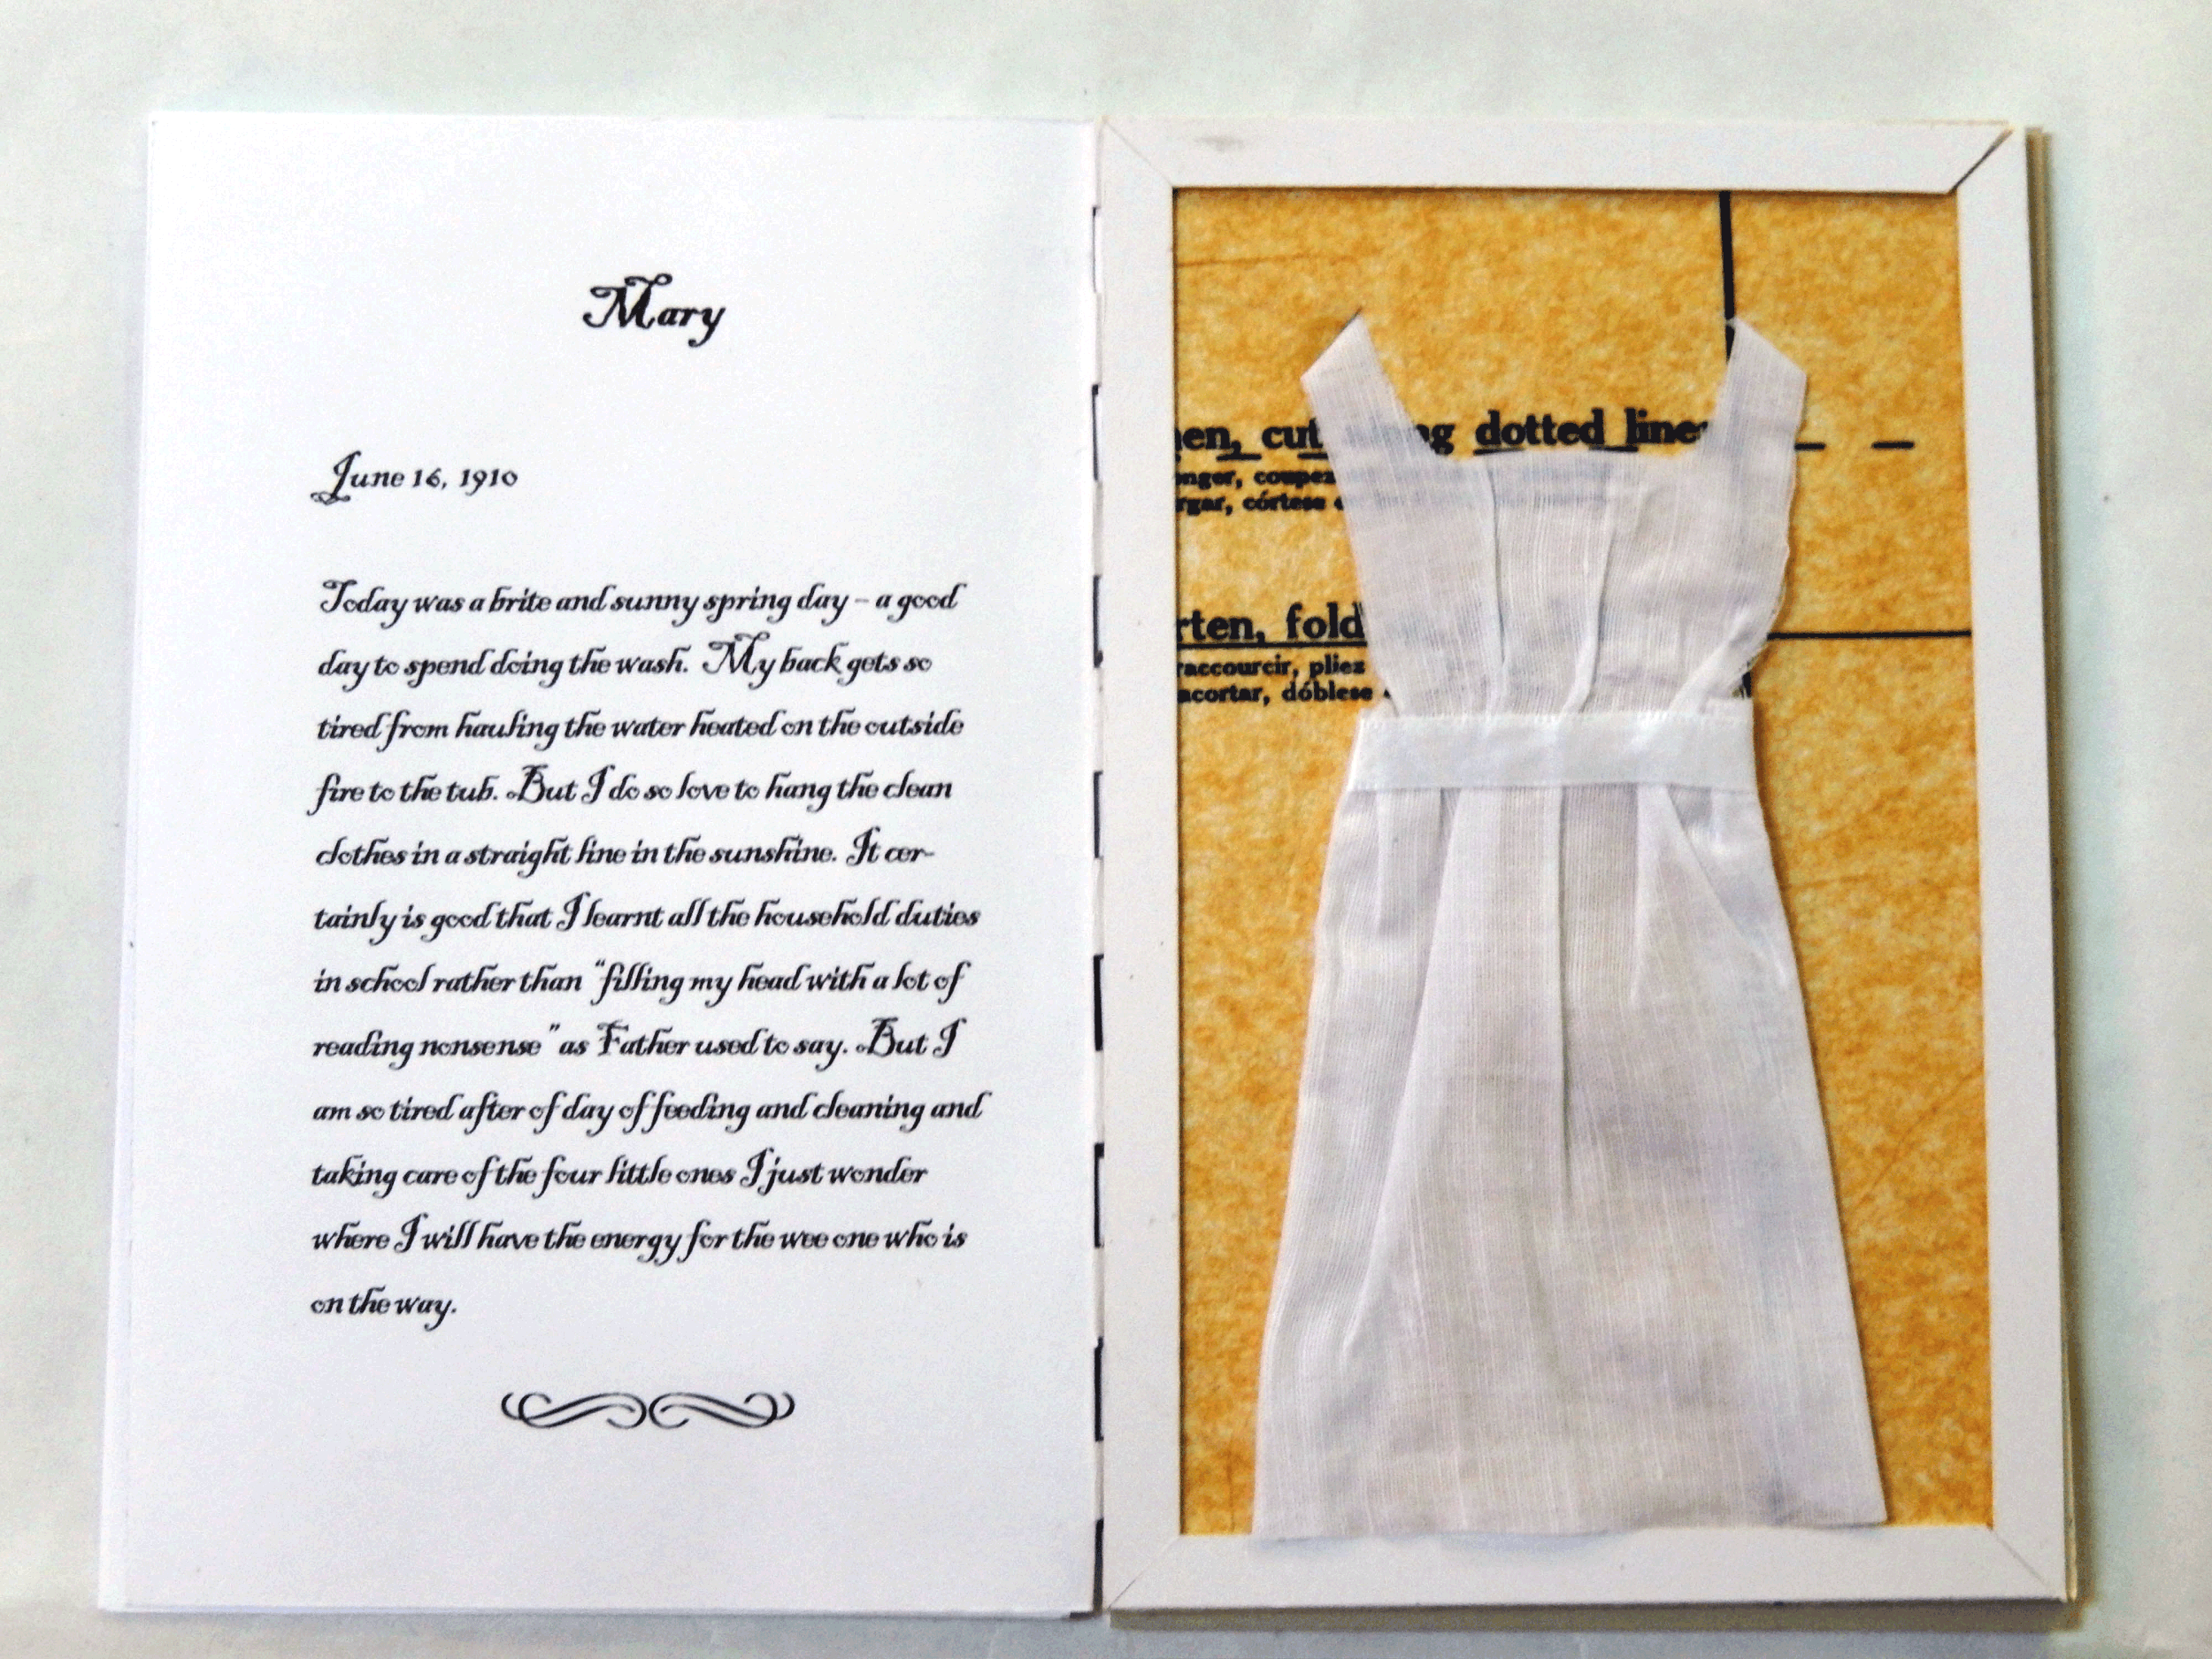 Mary
June 16, 1910
Today was a brite and sunny spring day – a good
day to spend doing the wash. My back gets so
tired from hauling the water heated on the outside
fire to the tub. But I do so love to hang the clean
clothes in a straight line in the sunshine. It cer-
tainly is good that I learnt all the household duties
in school rather than "filling my head with a lot of
reading nonsense" as Father used to say. But I
am so tired after of day of feeding and cleaning and
taking care of the four little ones I just wonder
where I will have the energy for the wee one who is
on the way.
cut dotted lines
coupez
córtese
fold
raccourcir, pliez
acortar, dóblese